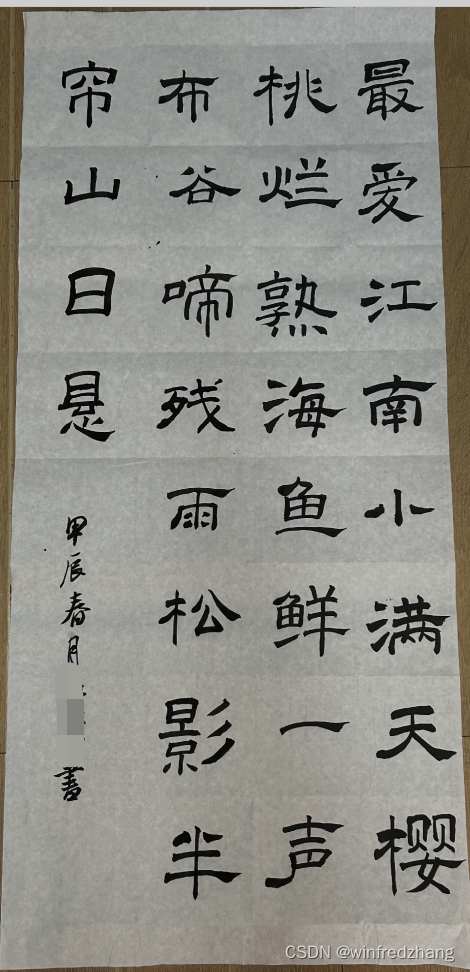 最爱江南小满天樱
桃烂熟海鱼鲜一声
布谷啼残雨松影半
帘山日悬
甲辰春月
書
CSDN @winfredzhang